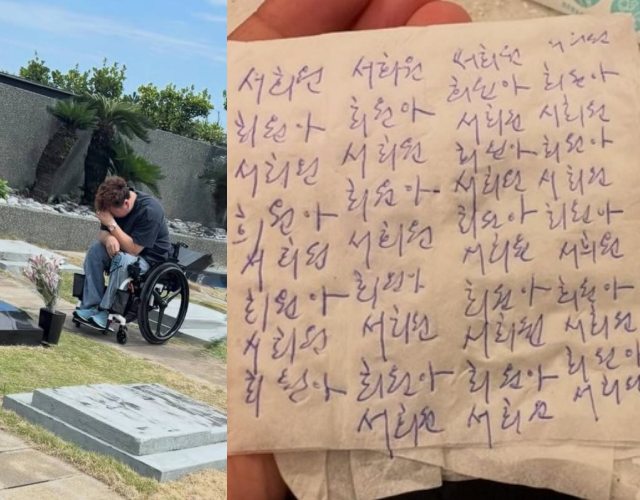 서희원 서희원 서희원 서희원
희원아 희원아 희원아 희원아
서희원 서희원 서희원 서희원
희원아 희원아 희원아 희원아
서희원 서희원 서희원 서희원
희원아 희원아 희원아 희원아
서희원 서희원 서희원 서희원
희원아 희원아 희원아 희원아
서희원 서희원 서희원
희원아 희원아
서희원 서희원